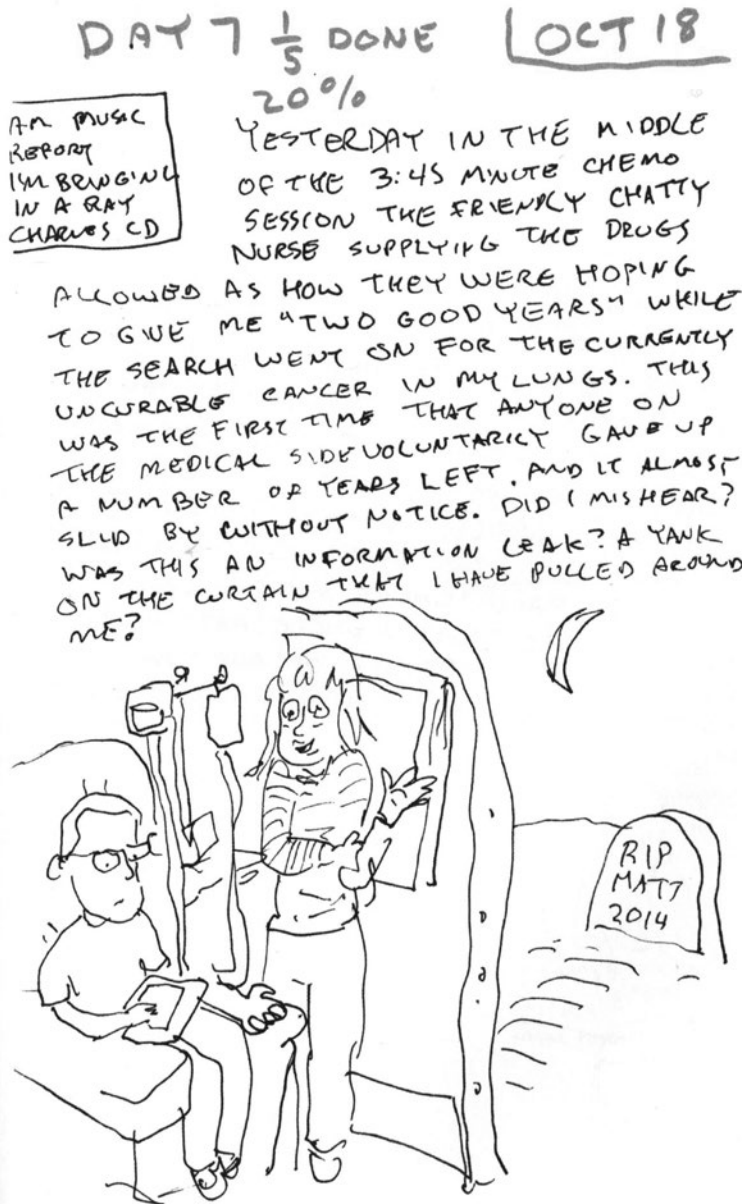 DAY 7 1/5 DONE
OCT 18
20%
AM MUSIC
REPORT
I'M BRINGING
IN A RAY
CHARLES CD
YESTERDAY IN THE MIDDLE
OF THE 3:45 MINUTE CHEMO
SESSION THE FRIENDLY CHATTY
NURSE SUPPLYING THE DRUGS
ALLOWED AS HOW THEY WERE HOPING
TO GIVE ME "TWO GOOD YEARS" WHILE
THE SEARCH WENT ON FOR THE CURRENTLY
UNCURABLE CANCER IN MY LUNGS. THIS
WAS THE FIRST TIME THAT ANYONE ON
THE MEDICAL SIDE VOLUNTARILY GAVE UP
A NUMBER OF YEARS LEFT. AND IT ALMOST
SLID BY WITHOUT NOTICE. DID I MISHEAR?
WAS THIS AN INFORMATION LEAK? A YANK
ON THE CURTAIN THAT I HAVE PULLED AROUND
ME?
RIP
MATT
2014